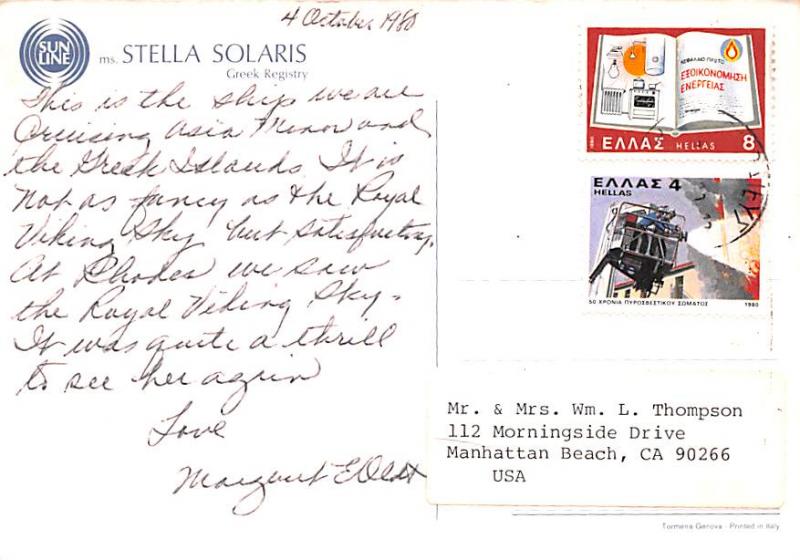 4 October 1980
SUN LINE
ms. STELLA SOLARIS
Greek Registry
This is the ship we are
Cruising Asia Minor and
the Greek Islands. It is
not as fancy as the Royal
Viking Sky but satisfactory.
At Rhodes we saw
the Royal Viking Sky -
It was quite a thrill
to see her again
Love
Margaret
ΚΕΦΑΛΑΙΟ ΠΡΩΤΟ
ΕΞΟΙΚΟΝΟΜΗΣΗ
ΕΝΕΡΓΕΙΑΣ
1980 ΕΛΛΑΣ HELLAS 8
ΕΛΛΑΣ 4
HELLAS
50 ΧΡΟΝΙΑ ΠΥΡΟΣΒΕΣΤΙΚΟΥ ΣΩΜΑΤΟΣ 1980
Mr. & Mrs. Wm. L. Thompson
112 Morningside Drive
Manhattan Beach, CA 90266
USA
Tormena Genova - Printed in Italy